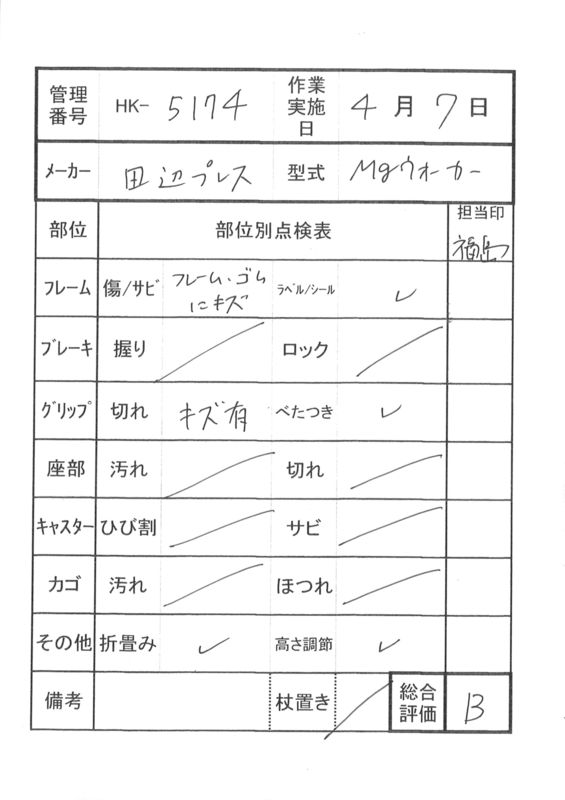 管理番号 HK- 5174 作業実施日 4月7日
メーカー 田辺プレス 型式 Mgウォーカー
部位 部位別点検表 担当印 福島
フレーム 傷/サビ フレーム、ゴムにキズ ラベル/シール ✓
ブレーキ 握り ロック
グリップ 切れ キズ有 べたつき ✓
座部 汚れ 切れ
キャスター ひび割 サビ
カゴ 汚れ ほつれ
その他 折畳み ✓ 高さ調節 ✓
備考 杖置き 総合評価 B